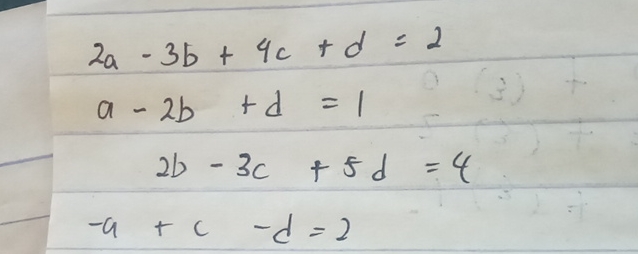 2a - 3b + 4c + d = 2
a - 2b + d = 1
2b - 3c + 5d = 4
-a + c - d = 2